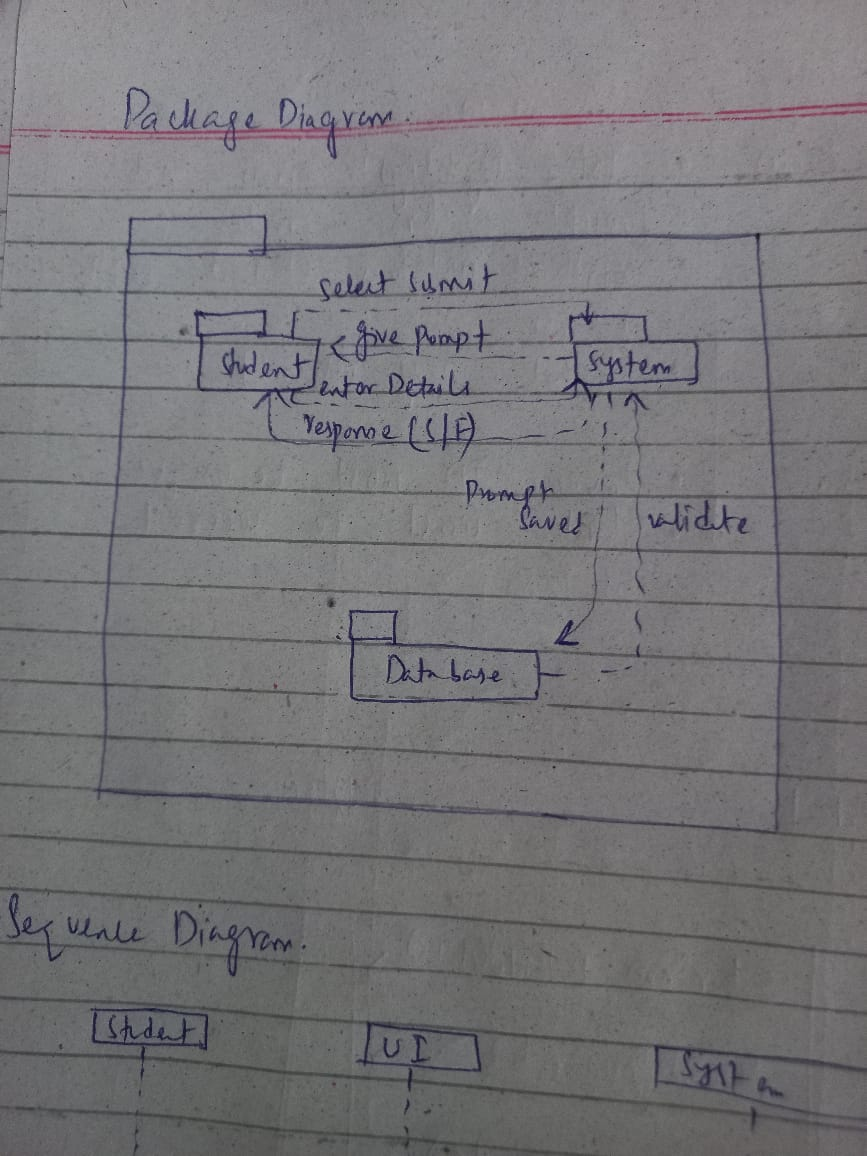 Package Diagram.
Select Submit
give Pompt
Student
System
enter Details
response (S/F)
Prompt
Saved
validate
Database
Sequence Diagram.
Student
UI
System